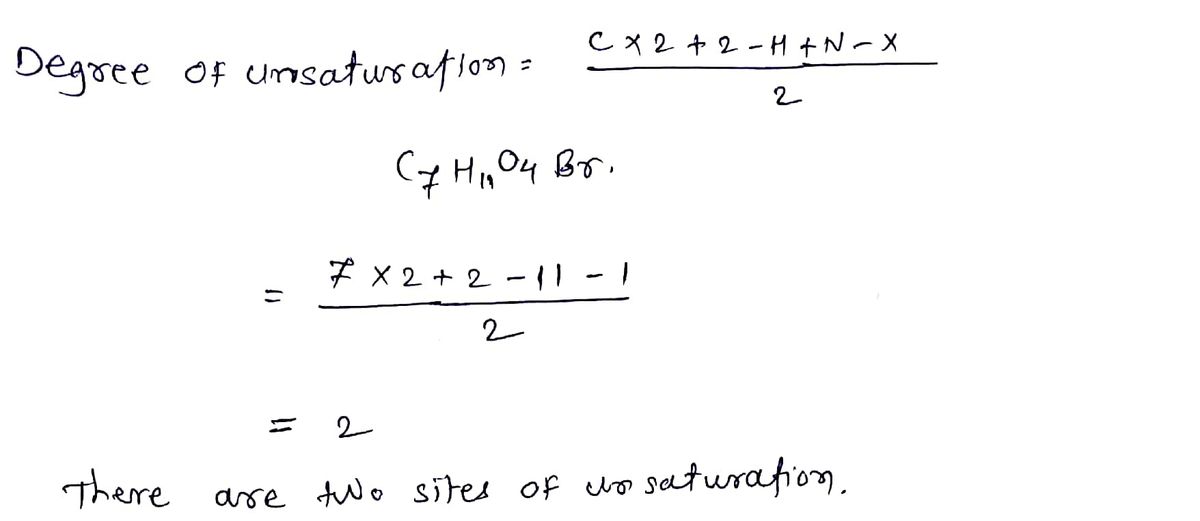 Degree of unsaturation = C × 2 + 2 - H + N - X
2
C7 H11 O4 Br.
= 7 × 2 + 2 - 11 - 1
2
= 2
There are two sites of unsaturation.